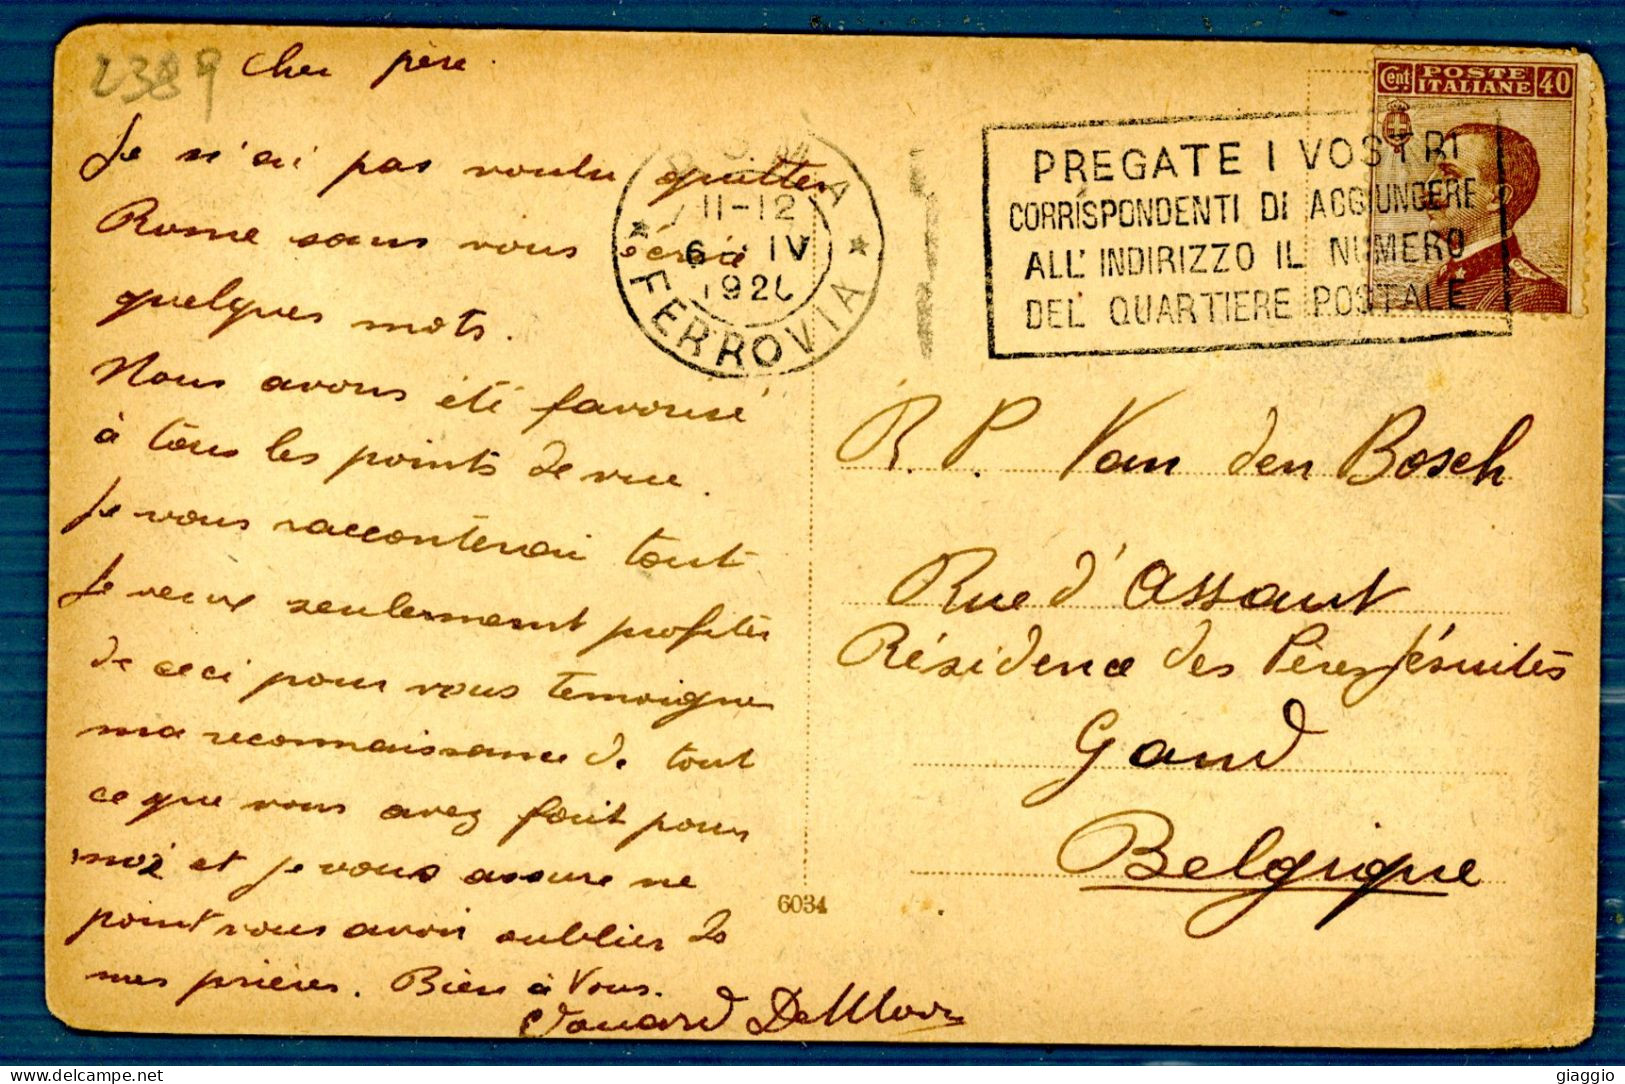 2389
Cher père.
Je n'ai pas voulu quitter
Rome sans vous écrire
quelques mots.
Nous avons été favorisé
à tous les points de vue.
Je vous raconterai tout
Je veux seulement profiter
de ceci pour vous temoigner
ma reconnaissance de tout
ce que vous avez fait pour
moi et je vous assure ne
point vous avoir oublier ds
mes prières. Bien à Vous.
Edouard
ROMA
11-12
6 IV
FERROVIA
PREGATE I VOSTRI
CORRISPONDENTI DI AGGIUNGERE
ALL' INDIRIZZO IL NUMERO
DEL QUARTIERE POSTALE
Cent POSTE ITALIANE 40
R. P. Van den Bosch
Rue d'Assaut
Résidence des Pères Jésuites
Gand
Belgique
6034
giaggio
delcampe.net